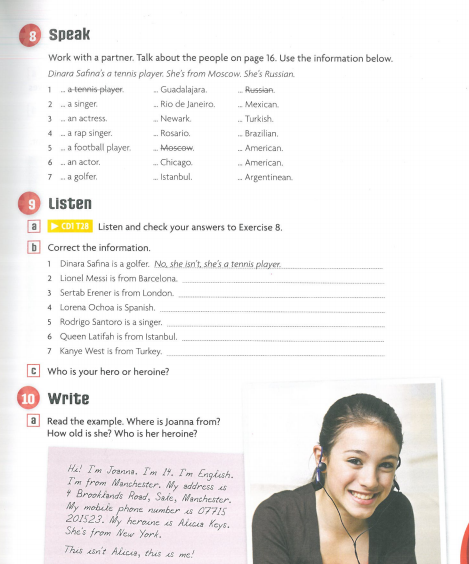 8 Speak
Work with a partner. Talk about the people on page 16. Use the information below.
Dinara Safina's a tennis player. She's from Moscow. She's Russian.
1 ... a tennis player. ... Guadalajara. ... Russian.
2 ... a singer. ... Rio de Janeiro. ... Mexican.
3 ... an actress. ... Newark. ... Turkish.
4 ... a rap singer. ... Rosario. ... Brazilian.
5 ... a football player. ... Moscow. ... American.
6 ... an actor. ... Chicago. ... American.
7 ... a golfer. ... Istanbul. ... Argentinean.
9 Listen
a CD1 T13 Listen and check your answers to Exercise 8.
b Correct the information.
1 Dinara Safina is a golfer. No, she isn't, she's a tennis player.
2 Lionel Messi is from Barcelona.
3 Sertab Erener is from London.
4 Lorena Ochoa is Spanish.
5 Rodrigo Santoro is a singer.
6 Queen Latifah is from Istanbul.
7 Kanye West is from Turkey.
c Who is your hero or heroine?
10 Write
a Read the example. Where is Joanna from?
How old is she? Who is her heroine?
Hi! I'm Joanna. I'm 14. I'm English.
I'm from Manchester. My address is
4 Brooklands Road, Sale, Manchester.
My mobile phone number is 07715
201523. My heroine is Alicia Keys.
She's from New York.
This isn't Alicia, this is me!